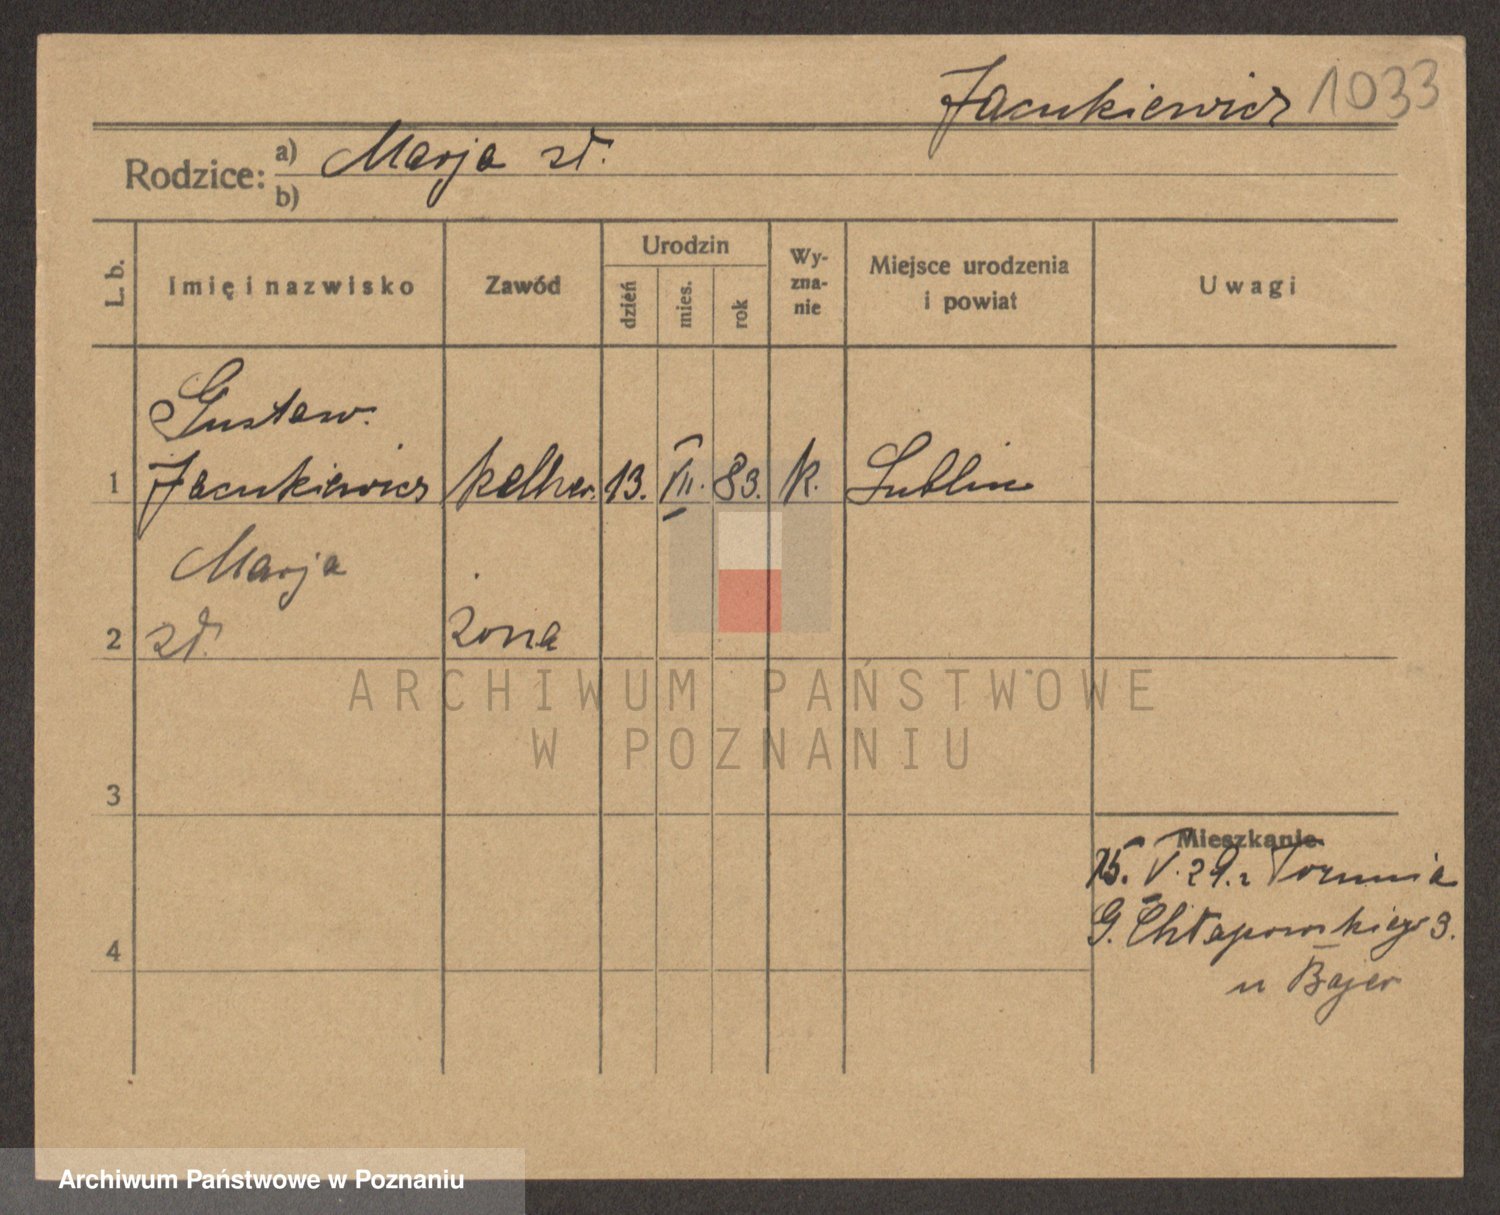 Jacukiewicz 1033
Rodzice: a) Marja zł.
b)
L. b. Imię i nazwisko Zawód Urodzin dzień mies. rok Wy-zna-nie Miejsce urodzenia i powiat Uwagi
Gustaw.
1 Jacukiewicz kelner. 13. VII. 83. k. Lublin
Marja
2 zł. żona
ARCHIWUM PAŃSTWOWE
W POZNANIU
3
Mieszkanie
15. V. 29. z Torunia
4 G. Chłapowskiego 3.
u Bajer
Archiwum Państwowe w Poznaniu